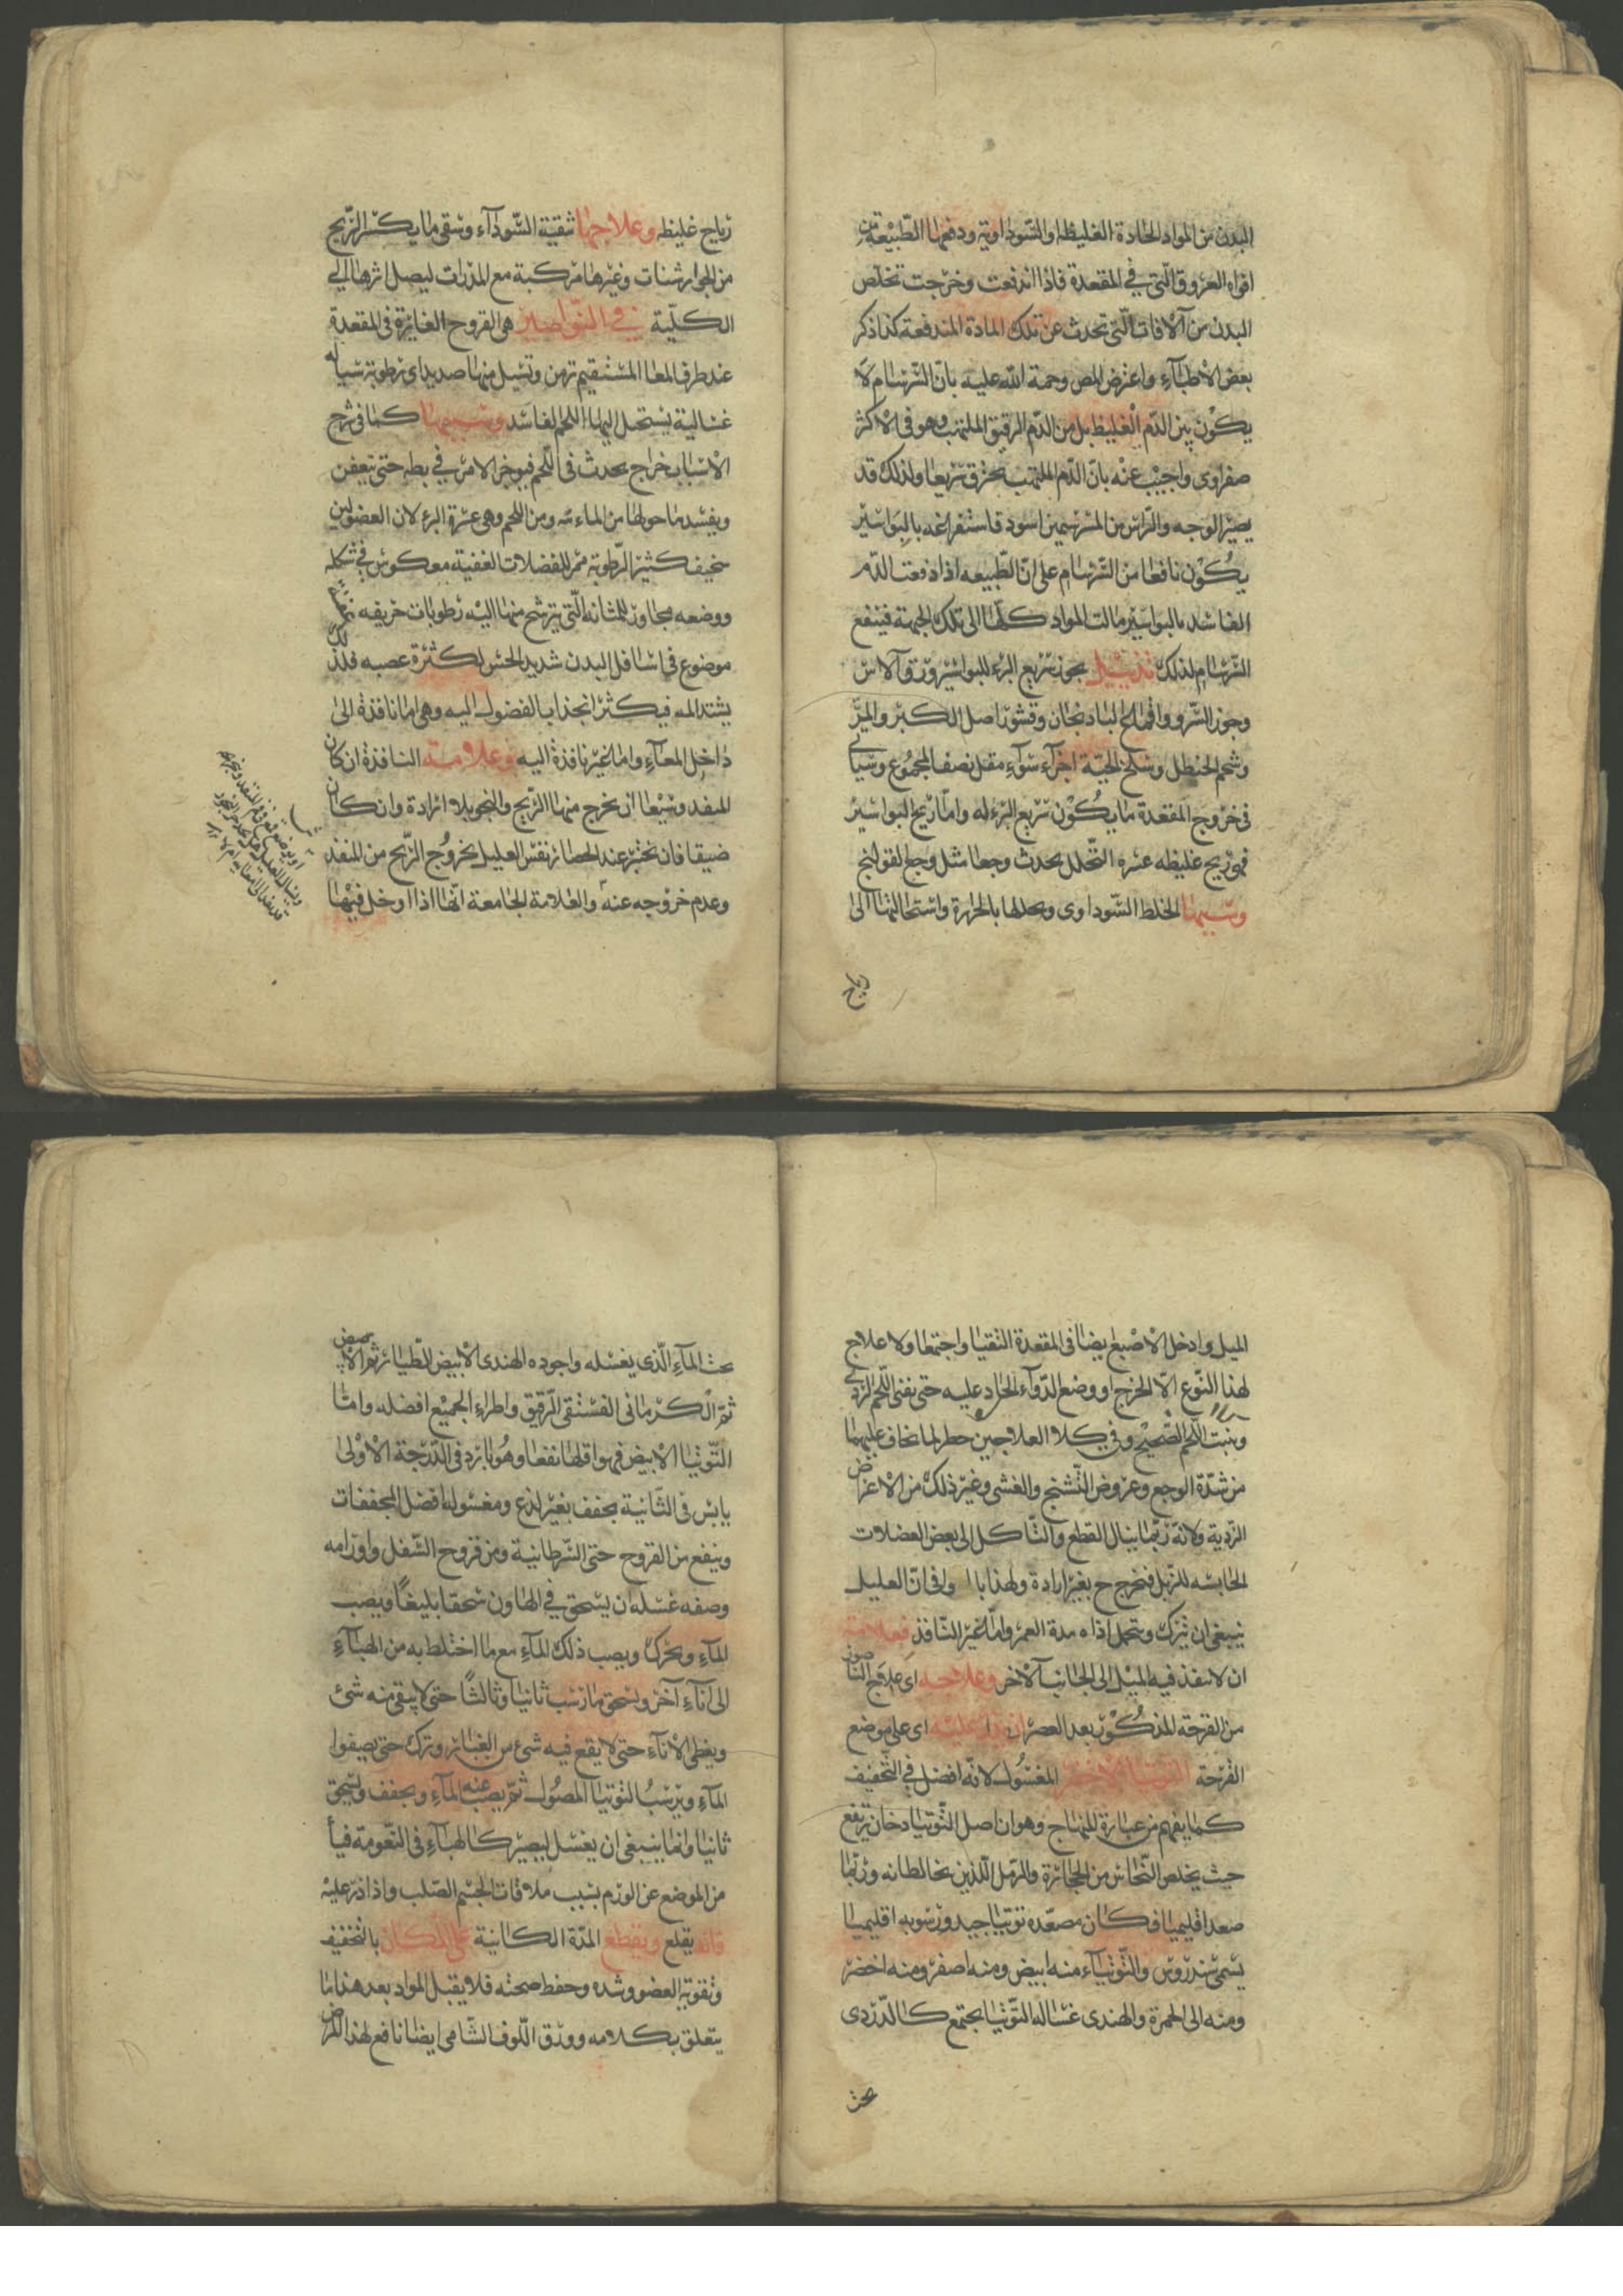 البدن من المواد الحادة الغليظه والسوداوية ودفعها الطبيعة من
افواه العروق التى في المقعدة فاذا اندفعت وخرجت تخلص
البدن من الآفات التى تحدث عن تلك المادة المندفعة كذا ذكر
بعض الأطباء واعترض المص رحمة الله عليه بان السرسام لا
يكون من الدم الغليظ بل من الدم الرقيق الملتهب وهو فى الاكثر
صفراوى واجيب عنه بان الدم الملتهب يحترق سريعا ولذلك قد
يصير الوجه والراس من المسرسمين اسود فاستفراغه بالبواسير
يكون نافعا من السرسام على ان الطبيعه اذا دفعت الدم
الفاسد بالبواسير مالت المواد كلها الى تلك الجهة فينفع
السرسام لذلك تذنيب بجوز سريع البرء للبواسير ورق الآس
وجوز السرو واقماع الباذنجان وقشور اصل الكبر والمر
وشحم الحنظل وسلخ الحية اجزآء سوآء مقل نصف المجموع وسياتى
فى خروج المقعدة ما يكون سريع البرء له واما ريح البواسير
فهى ريح غليظه عسره التحلل يحدث وجعا مثل وجع القولنج
وسببها الخلط السوداوى وتحللها بالحرارة واستحالتها الى
رياح
رياح غليظه وعلاجها تنقية السودآء وسقى ما يكسر الريح
من الجوارشنات وغيرها مركبة مع المدرات ليصل اثرها الى
الكلية في النواصير هى القروح الغائرة فى المقعدة
عند طرف المعا المستقيم تزمن وتسيل منها صديد اى رطوبة سياله
غسالية يستحيل اليها اللحم الفاسد وسببها كما فى شرح
الأسباب خراج يحدث فى اللحم فيوخر الامر في بطه حتى يتعفن
ويفسد ما حولها من الماءسه ومن اللحم وهى عسرة البرء لان العضو لين
سخيف كثير الرطوبة ممر للفضلات العفنة معكوس في شكله
ووضعه مجاور للمثانه التى يترشح منها اليه رطوبات حريفه
موضوع فى اسافل البدن شديد الحس لكثرة عصبه فلذلك
يشتد المه فيكثر انجذاب الفضول اليه وهى اما نافذة الى
داخل المعاء واما غير نافذة اليه وعلامته النافذة ان كان
المنفذ وسيعا ان يخرج منها الريح والنجو بلا ارادة وان كان
ضيقا فان تختبر عند انحصار نفس العليل بخروج الريح من المنفذ
وعدم خروجه عنه والعلامة الجامعة انها اذا ادخل فيها
الميل وادخل الأصبع ايضا فى المقعدة التقيا واجتمعا ولا علاج
لهذا النوع الا الخرج او وضع الدوآء الحاد عليه حتى تفنى اللحم الردى
وينبت اللحم الصحيح وفي كلا العلاجين خطر لما يخاف عليهما
من شدة الوجع وعروض التشنج والغشى وغير ذلك من الاعراض
الردية ولانه ربما ينال القطع والتاكل الى بعض العضلات
الحابسه للزبل فتخرج ح بغير ارادة ولهذا العليل
ينبغى ان يترك وتتحمل اذاه مدة العمر واما الغير النافذ فعلامته
ان لا ينفذ فيه الميل الى الجانب الآخر وعلاجه اى علاج الناصور
من القرحة المذكور بعد العصر عليه اى على موضع
القرحة التوتيا الاخضر المغسول لانه افضل في التجفيف
كما يفهم من عبارة المنهاج وهو ان اصل التوتيا دخان يرتفع
حيث يخلص النحاس من الحجارة والرمل اللذين يخالطانه وربما
صعد اقليميا فكان مصعده توتيا جيد ورسوبه اقليميا
يسمى سندروس والتوتياء منه ابيض ومنه اصفر ومنه اخضر
ومنه الى الحمرة والهندى غساله التوتيا يجتمع كالدردى
تحت
تحت المآء الذى يغسله واجوده الهندى الأبيض الطيار ثم الأصفر
ثم الكرمانى الفستقى الرقيق واطراء الجميع افضله واما
التوتيا الابيض فهو اقلها نفعا وهو بارد فى الدرجة الأولى
يابس فى الثانية يجفف بغير لذع ومغسوله افضل المجففات
وينفع من القروح حتى السرطانية ومن قروح السفل واورامه
وصفه غسله ان يسحق في الهاون سحقا بليغا ويصب
المآء ويحرك ويصب ذلك المآء مع ما اختلط به من الهبآء
الى انآء آخر ويسحق ما رسب ثانيا وثالثا حتى لا يبقى منه شئ
ويغطى الأناء حتى لا يقع فيه شئ من الغبار ويترك حتى يصفوا
المآء ويرسب التوتيا المصول ثم يصب عنه المآء ويجفف ويسحق
ثانيا وانما ينبغى ان يغسل ليصير كالهبآء فى النعومة
من الموضع عن الورم بسبب ملاقات الجسم الصلب واذا ذر عليه
فانه يقلع ويقطع المدة الكائنة على المكان بالتخفيف
وتقوية العضو وشده وحفظ صحته فلا يقبل المواد بعد هذا ما
يتعلق بكلامه وورق اللوف الشامى ايضا نافع لهذا المرض